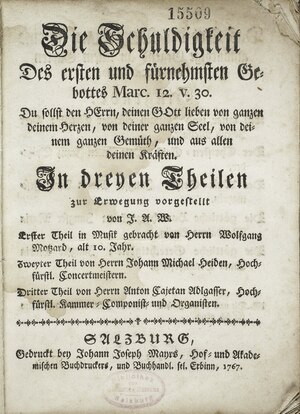 15509
Die Schuldigkeit
Des ersten und fürnehmsten Ge-
bottes Marc. 12. v. 30.
Du sollst den HErrn, deinen GOtt lieben von ganzen
deinem Herzen, von deiner ganzen Seel, von dei-
nem ganzen Gemüth, und aus allen
deinen Kräften.
In dreyen Theilen
zur Erwegung vorgestellt
von J. A. W.
Erster Theil in Musik gebracht von Herrn Wolfgang
Motzard, alt 10. Jahr.
Zweyter Theil von Herrn Johann Michael Heiden, Hoch-
fürstl. Concertmeistern.
Dritter Theil von Herrn Anton Cajetan Adlgasser, Hoch-
fürstl. Kammer-Componist- und Organisten.
SALZBURG,
Gedruckt bey Johann Joseph Mayrs, Hof- und Akade-
mischen Buchdruckers, und Buchhandl. sel. Erbinn, 1767.